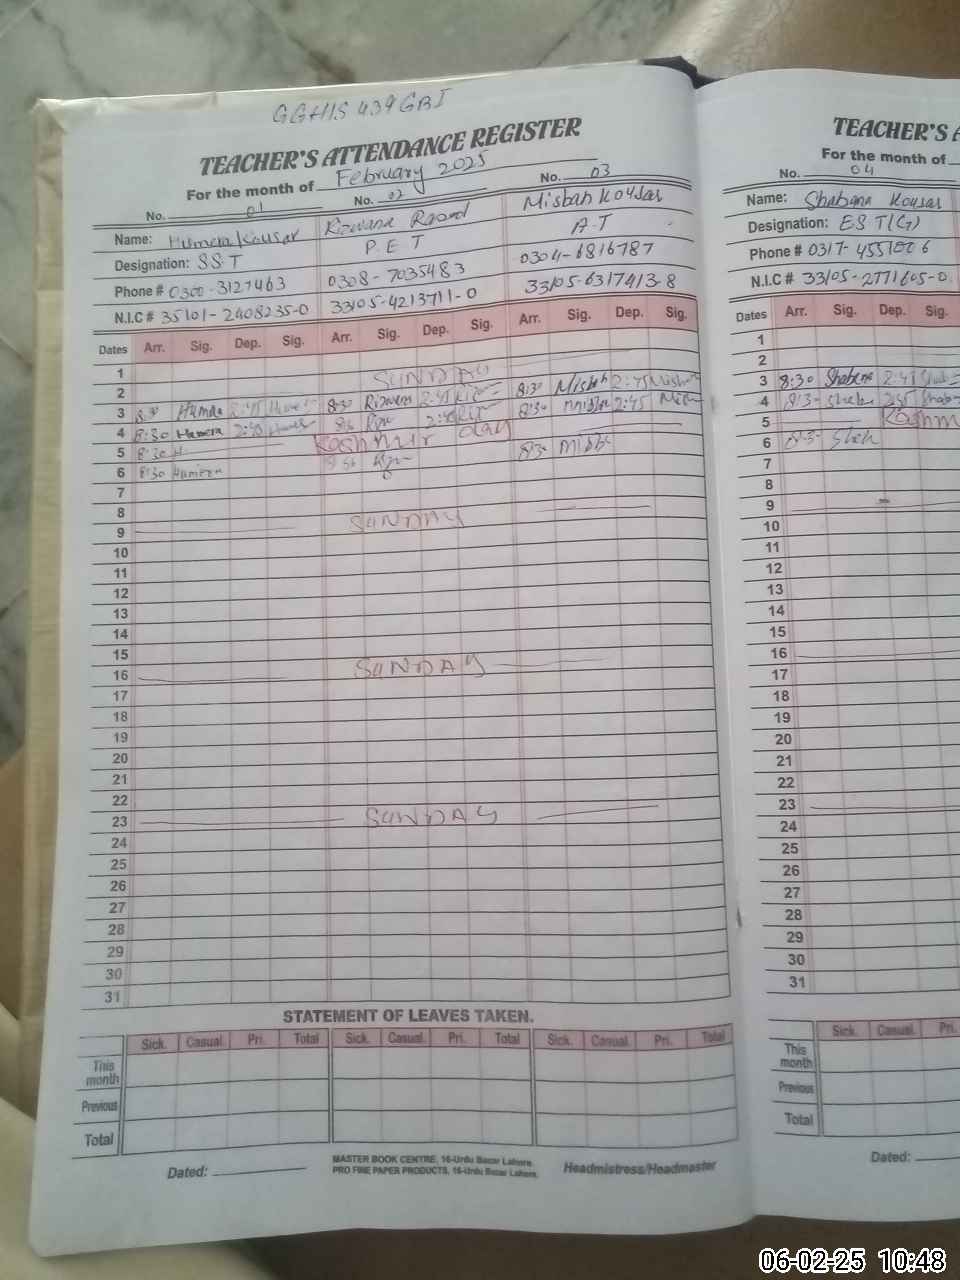 GGHS 439GBI
TEACHER'S ATTENDANCE REGISTER
For the month of February 2025
No. 01 No. 02 No. 03
Name: Humera Kousar Rizwana Misbah Kousar
Designation: SST P.E.T A.T
Phone # 0300-3127463 0308-7035483 0304-6816787
N.I.C # 35101-2408235-0 33105-4213711-0 33105-6317413-8
Dates Arr. Sig. Dep. Sig. Arr. Sig. Dep. Sig. Arr. Sig. Dep. Sig.
1
2 SUNDAY
3 8:30 Humera 2:45 8:30 Rizwana 2:45 8:30 Misbah 2:45 Misbah
4 8:30 Humera 2:45 2:45 8:30 2:45
5 8:30 H Kashmir day
6 8:30 Humera 8:30
7
8
9 SUNDAY
10
11
12
13
14
15
16 SUNDAY
17
18
19
20
21
22
23 SUNDAY
24
25
26
27
28
29
30
31
STATEMENT OF LEAVES TAKEN.
Sick. Casual. Pri. Total Sick. Casual. Pri. Total Sick. Casual. Pri. Total
This month
Previous
Total
MASTER BOOK CENTRE, 16-Urdu Bazar Lahore.
Dated: PRO FINE PAPER PRODUCTS, 16-Urdu Bazar Lahore. Headmistress/Headmaster
TEACHER'S A
For the month of
No. 04
Name: Shabana Kousar
Designation: EST(G)
Phone # 0317-4551006
N.I.C # 33105-2771605-0
Dates Arr. Sig. Dep. Sig.
1
2
3 8:30 Shabana 2:45
4 8:3- 2:45
5 Kashm
6 8:3-
7
8
9
10
11
12
13
14
15
16
17
18
19
20
21
22
23
24
25
26
27
28
29
30
31
Sick. Casual. Pri.
This month
Previous
Total
Dated:
06-02-25 10:48